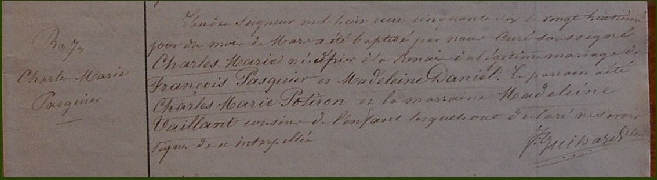 Charles Marie
Pasquier
du Seigneur mil huit cent cinquante six le vingt huitième
jour du mois de Mars a été baptisé par nous Curé soussigné
Charles Marie né d'hier du légitime mariage de
François Pasquier et Madeleine Daniel. Le parrain a été
Charles Marie Potiron et la marraine Madeleine
Vaillant cousins de l'enfant lesquels ont déclaré ne savoir
signer de ce interpellés